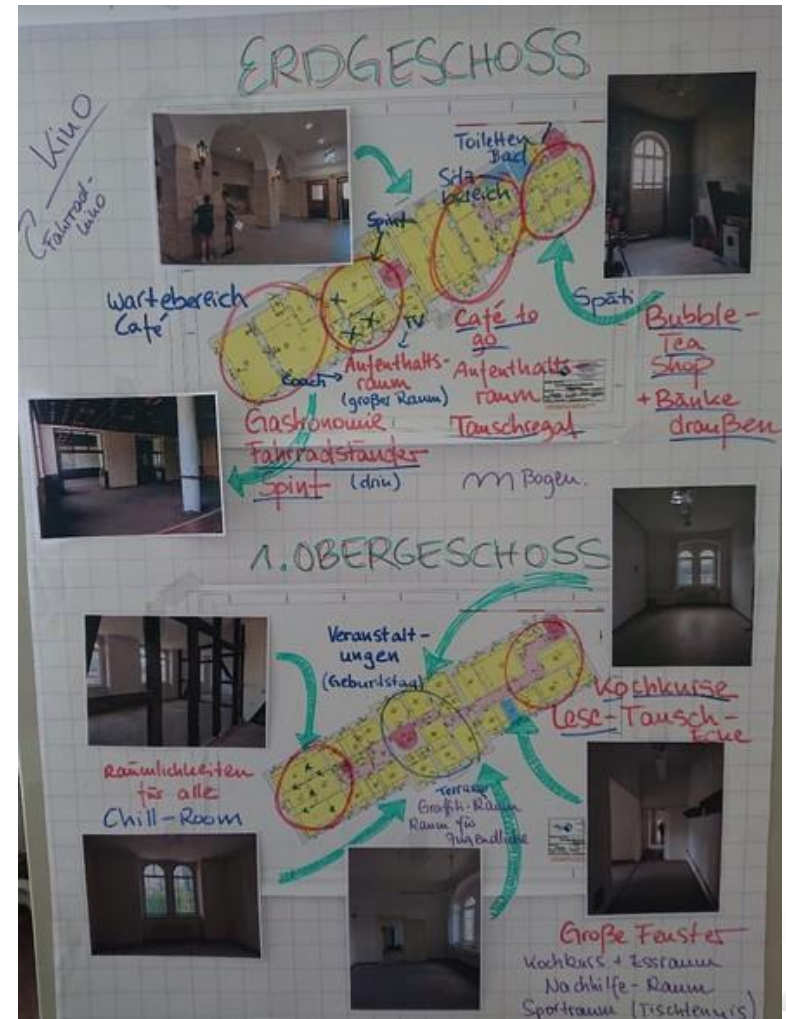 ERDGESCHOSS
Kino
Fahrrad-
kino
Toiletten
Bad
Sitz-
bereich
Spint
Wartebereich
Café
TV
Coach
Aufenthalts-
raum
(großer Raum)
Café to
go
Aufenthalts-
raum
Tauschregal
Späti
Bubble-
Tea
Shop
+ Bänke
draußen
Gastronomie
Fahrradständer
Spint (drin)
Bogen.
1. OBERGESCHOSS
Veranstalt-
ungen
(Geburtstag)
Kochkurse
Lese-Tausch-
Ecke
Räumlichkeiten
für alle
Chill-Room
Terrasse
Graffiti-Raum
Raum für
Jugendliche
Große Fenster
Kochkurs + Essraum
Nachhilfe-Raum
Sportraum (Tischtennis)